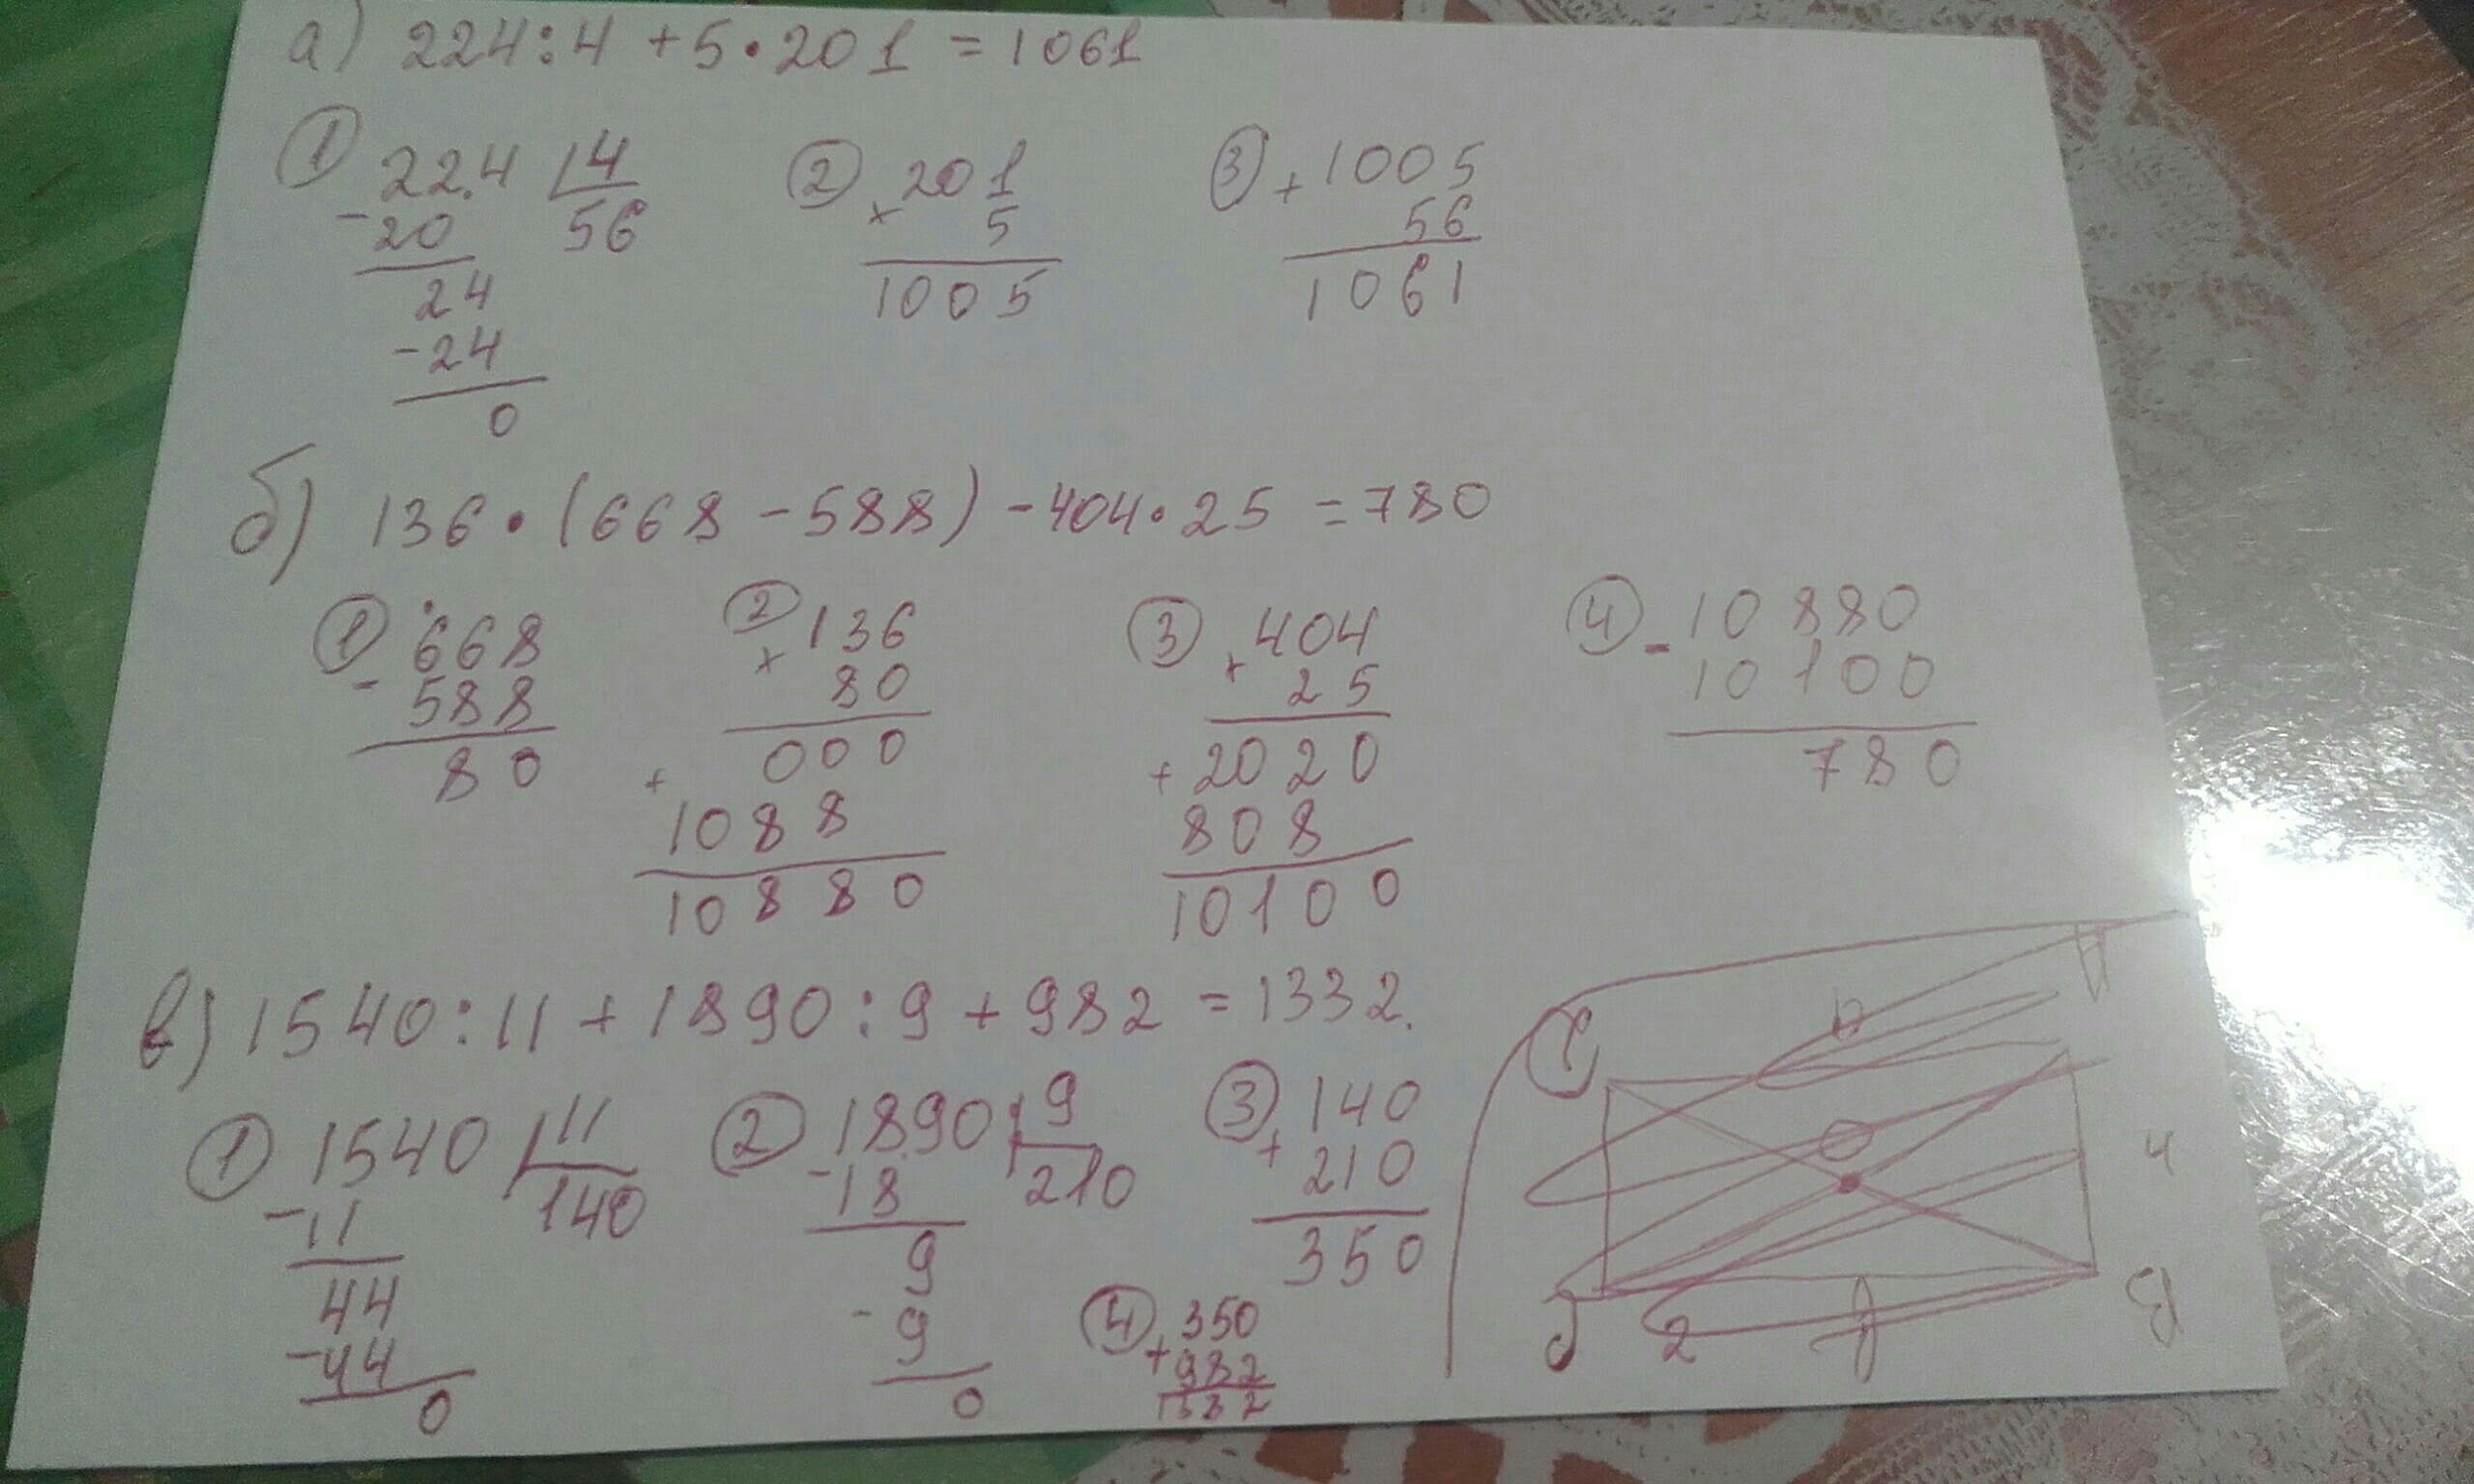 а) 224:4 + 5 • 201 = 1061
① 224 | 4
- 20 56
24
- 24
0
② 201
× 5
1005
③ + 1005
56
1061
б) 136 • (668 - 588) - 404 • 25 = 780
① 668
- 588
80
② 136
× 80
+ 000
1088
10880
③ 404
× 25
+ 2020
808
10100
④ - 10880
10100
780
в) 1540 : 11 + 1890 : 9 + 982 = 1332.
① 1540 | 11
- 11 140
44
- 44
0
② 1890 | 9
- 18 210
9
- 9
0
③ 140
+ 210
350
④ 350
+ 982
1332